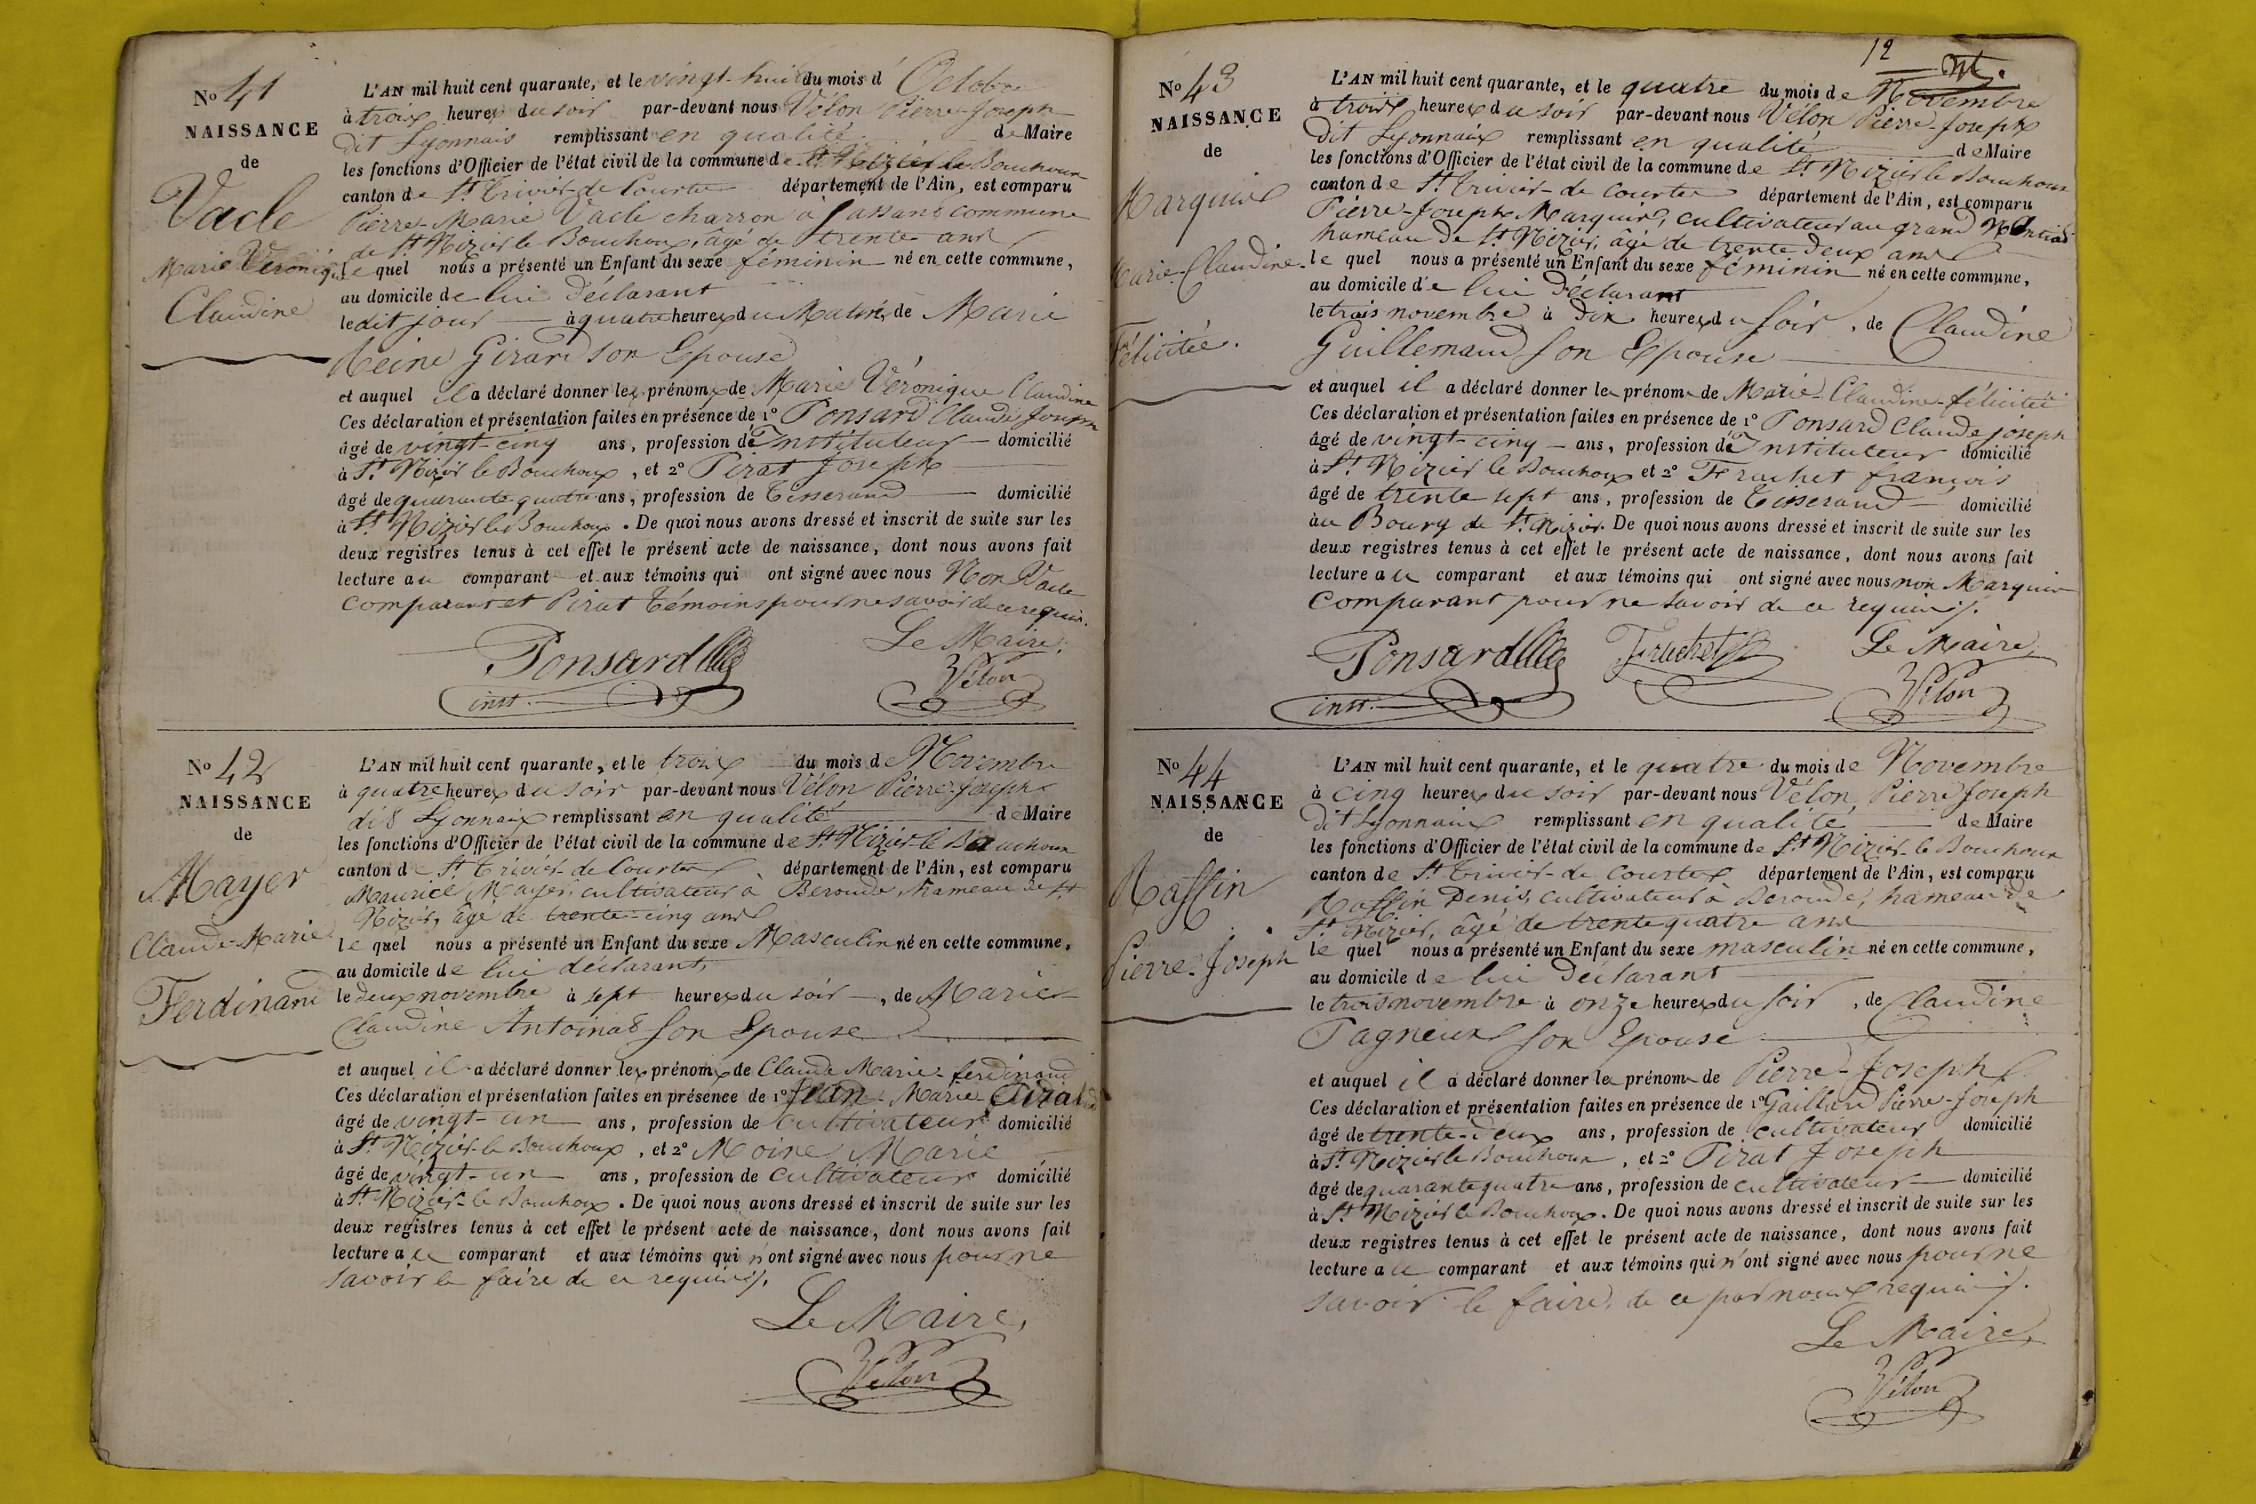 No 41
NAISSANCE
de
Vacle
Marie Véronique
Claudine
L'AN mil huit cent quarante, et le vingt-huit du mois d'Octobre
à trois heures du soir par-devant nous Vélon Pierre-Joseph
dit Lyonnais remplissant en qualité de Maire
les fonctions d'Officier de l'état civil de la commune de St Nizier le Bouchoux
canton de St Trivier-de Courtes département de l'Ain, est comparu
Pierre-Marie Vacle charron à commune
de St Nizier le Bouchoux, âgé de trente ans
le quel nous a présenté un Enfant du sexe féminin né en cette commune,
au domicile de lui Déclarant
le dit jour à quatre heures du Matin, de Marie
Reine Girard son Epouse
et auquel il a déclaré donner les prénoms de Marie Véronique Claudine
Ces déclaration et présentation faites en présence de 1o Ponsard Claude Joseph
âgé de vingt-cinq ans, profession de Instituteur domicilié
à St Nizier le Bouchoux, et 2o Pirat Joseph
âgé de quarante quatre ans, profession de Tisserand domicilié
à St Nizier le Bouchoux. De quoi nous avons dressé et inscrit de suite sur les
deux registres tenus à cet effet le présent acte de naissance, dont nous avons fait
lecture au comparant et aux témoins qui ont signé avec nous Non Vacle
Comparant et Pirat Témoins pour ne savoir de ce requis.
Le Maire,
Ponsard
inst.
Vélon
No 42
NAISSANCE
de
Mayer
Claude-Marie
Ferdinand
L'AN mil huit cent quarante, et le trois du mois de Novembre
à quatre heures du soir par-devant nous Vélon Pierre-Joseph
dit Lyonnais remplissant en qualité de Maire
les fonctions d'Officier de l'état civil de la commune de St Nizier-le Bouchoux
canton de St Trivier-de Courtes département de l'Ain, est comparu
Maurice Mayer, cultivateur à Beroude, hameau de St
Nizier, âgé de trente-cinq ans
le quel nous a présenté un Enfant du sexe Masculin né en cette commune,
au domicile de lui déclarant,
le deux novembre à sept heures du soir, de Marie
Claudine Antoinat son Epouse
et auquel il a déclaré donner les prénoms de Claude Marie-ferdinand
Ces déclaration et présentation faites en présence de 1o Jean-Marie
âgé de vingt-un ans, profession de cultivateur domicilié
à St Nizier-le Bouchoux, et 2o Moine Marie
âgé de vingt-un ans, profession de cultivateur domicilié
à St Nizier-le Bouchoux. De quoi nous avons dressé et inscrit de suite sur les
deux registres tenus à cet effet le présent acte de naissance, dont nous avons fait
lecture au comparant et aux témoins qui n'ont signé avec nous pour ne
savoir le faire de ce requis.
Le Maire,
Vélon
12
No 43
NAISSANCE
de
Marquis
Marie-Claudine-
Félicitée.
L'AN mil huit cent quarante, et le quatre du mois de Novembre
à trois heures du soir par-devant nous Vélon Pierre-Joseph
dit Lyonnais remplissant en qualité de Maire
les fonctions d'Officier de l'état civil de la commune de St Nizier le Bouchoux
canton de St Trivier-de Courtes département de l'Ain, est comparu
Pierre-Joseph Marquis, cultivateur au grand
hameau de St Nizier, âgé de trente deux ans
le quel nous a présenté un Enfant du sexe féminin né en cette commune,
au domicile de lui Déclarant
le trois novembre à dix heures du soir, de Claudine
Guillemaud son Epouse
et auquel il a déclaré donner le prénom de Marie-Claudine-félicitée
Ces déclaration et présentation faites en présence de 1o Ponsard Claude joseph
âgé de vingt-cinq ans, profession de Instituteur domicilié
à St Nizier le Bouchoux et 2o Fruchet françois
âgé de trente sept ans, profession de Tisserand domicilié
àu Bourg de St Nizier. De quoi nous avons dressé et inscrit de suite sur les
deux registres tenus à cet effet le présent acte de naissance, dont nous avons fait
lecture au comparant et aux témoins qui ont signé avec nous non Marquis
Comparant pour ne savoir de ce requis.
Ponsard
inst.
Fruchet
Le Maire,
Vélon
No 44
NAISSANCE
de
Raffin
Pierre-Joseph
L'AN mil huit cent quarante, et le quatre du mois de Novembre
à cinq heures du soir par-devant nous Vélon, Pierre Joseph
dit Lyonnais remplissant en qualité de Maire
les fonctions d'Officier de l'état civil de la commune de St Nizier-le Bouchoux
canton de St Trivier-de Courtes département de l'Ain, est comparu
Raffin Denis, cultivateur à Beroude, hameau de
St Nizier, âgé de trente quatre ans
le quel nous a présenté un Enfant du sexe masculin né en cette commune,
au domicile de lui Déclarant
le trois novembre à onze heures du soir, de Claudine
Pagneux son Epouse
et auquel il a déclaré donner le prénom de Pierre-Joseph
Ces déclaration et présentation faites en présence de 1o Gaillard Pierre-Joseph
âgé de trente-deux ans, profession de cultivateur domicilié
à St Nizier le Bouchoux, et 2o Pirat Joseph
âgé de quarante quatre ans, profession de cultivateur domicilié
à St Nizier le Bouchoux. De quoi nous avons dressé et inscrit de suite sur les
deux registres tenus à cet effet le présent acte de naissance, dont nous avons fait
lecture au comparant et aux témoins qui n'ont signé avec nous pour ne
savoir le faire, de ce par nous requis.
Le Maire,
Vélon